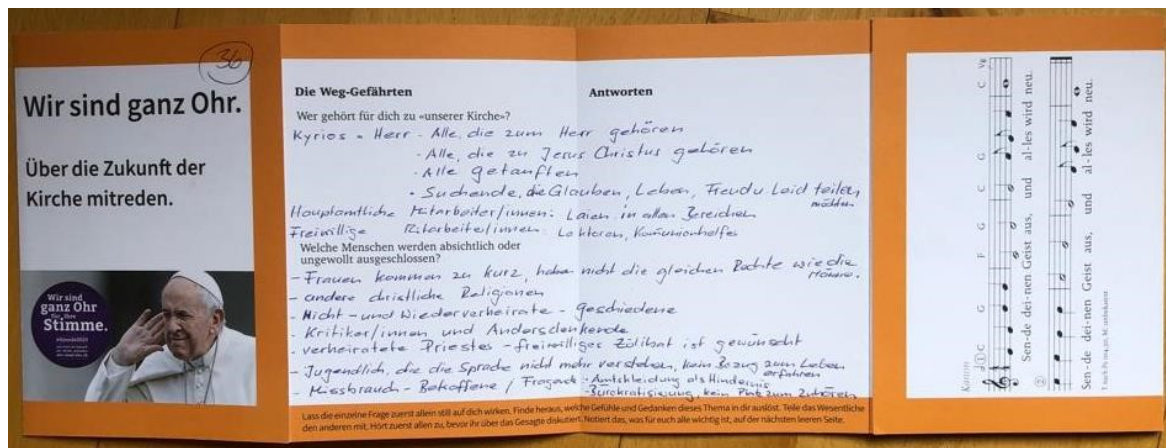 36
Wir sind ganz Ohr.
Über die Zukunft der
Kirche mitreden.
Wir sind
ganz Ohr
für Ihre
Stimme.
Die Weg-Gefährten
Antworten
Wer gehört für dich zu «unserer Kirche»?
Kyrios = Herr - Alle, die zum Herr gehören
- Alle, die zu Jesus Christus gehören
- Alle Getauften
- Suchende, die Glauben, Leben, Freud u Leid teilen
möchten
Hauptamtliche Mitarbeiter/innen: Laien in allen Bereichen
Freiwillige Mitarbeiter/innen: Lektoren, Kommunionhelfer
Welche Menschen werden absichtlich oder
ungewollt ausgeschlossen?
- Frauen kommen zu kurz, haben nicht die gleichen Rechte wie die
Männer.
- andere christliche Religionen
- Nicht- und Wiederverheirate - Geschiedene
- Kritiker/innen und Andersdenkende
- verheiratete Priester - freiwilliges Zölibat ist gewünscht
- Jugendlich, die die Sprache nicht mehr verstehen, kein Bezug zum Leben
erfahren
- Missbrauch - Betroffene / Fragende - Amtskleidung als Hindernis
- Bürokratisierung, kein Platz zum Zuhören
Lass die einzelne Frage zuerst allein still auf dich wirken. Finde heraus, welche Gefühle und Gedanken dieses Thema in dir auslöst. Teile das Wesentliche
den anderen mit. Hört zuerst allen zu, bevor ihr über das Gesagte diskutiert. Notiert das, was für euch alle wichtig ist, auf der nächsten leeren Seite.
Kanon
C G F G C G C
Sen-de dei-nen Geist aus, und al-les wird neu.
Sen-de dei-nen Geist aus, und al-les wird neu.